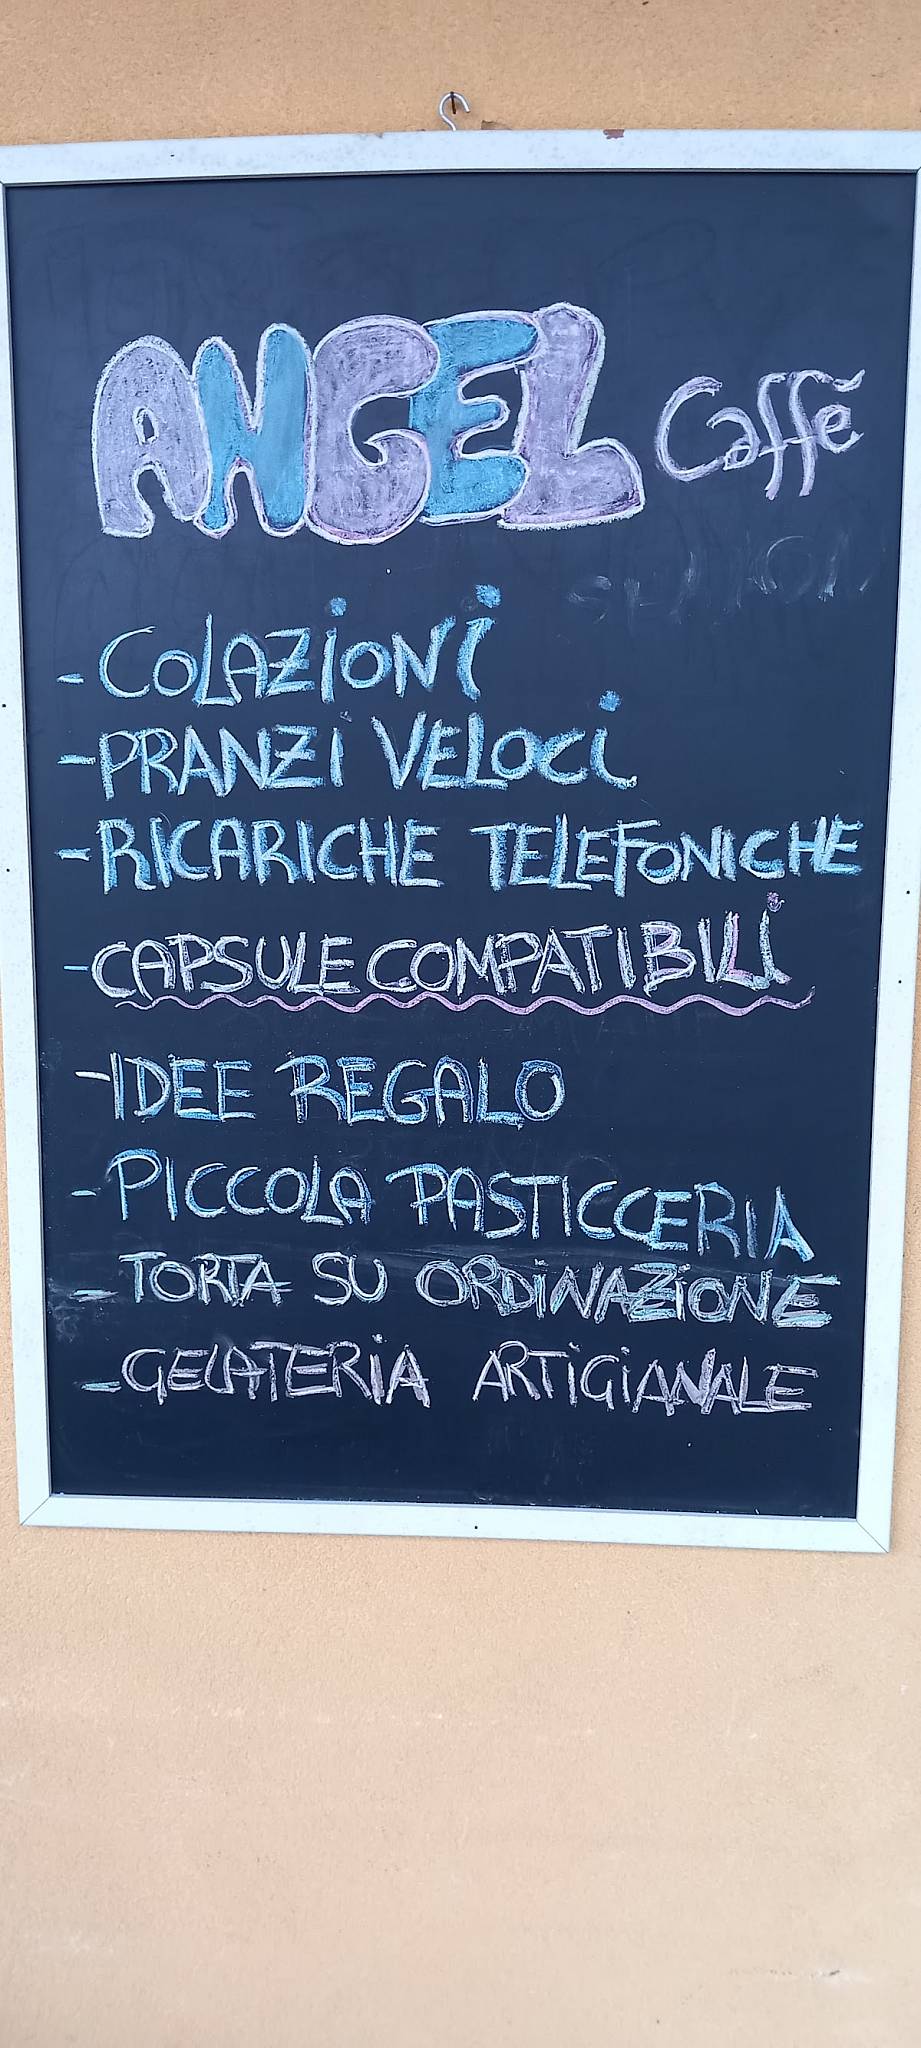 ANGEL Caffé
- COLAZiONi
- PRANZi VELOCi
- RICARICHE TELEFONICHE
- CAPSULE COMPATIBILi
- IDEE REGALO
- PICCOLA PASTICCERIA
- TORTA SU ORDiNAZiONE
- GELATERiA ARTiGiANALE